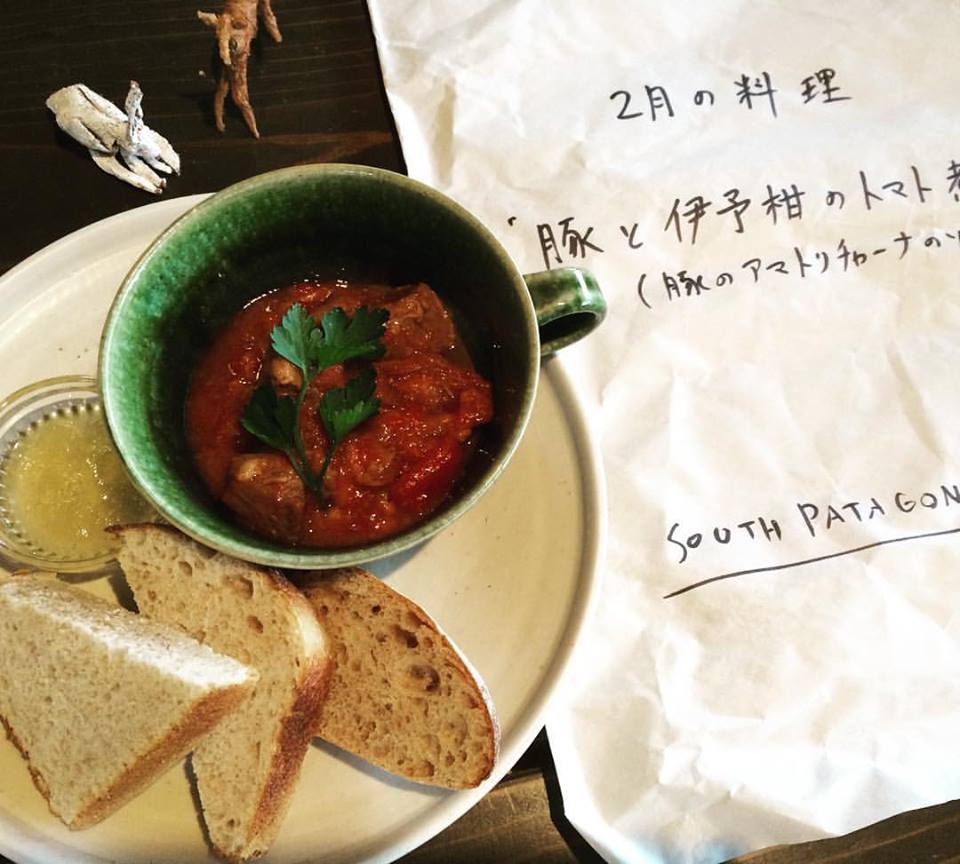 2月の料理
・豚と伊予柑のトマト煮
(豚のアマトリチャーナの
SOUTH PATAGON